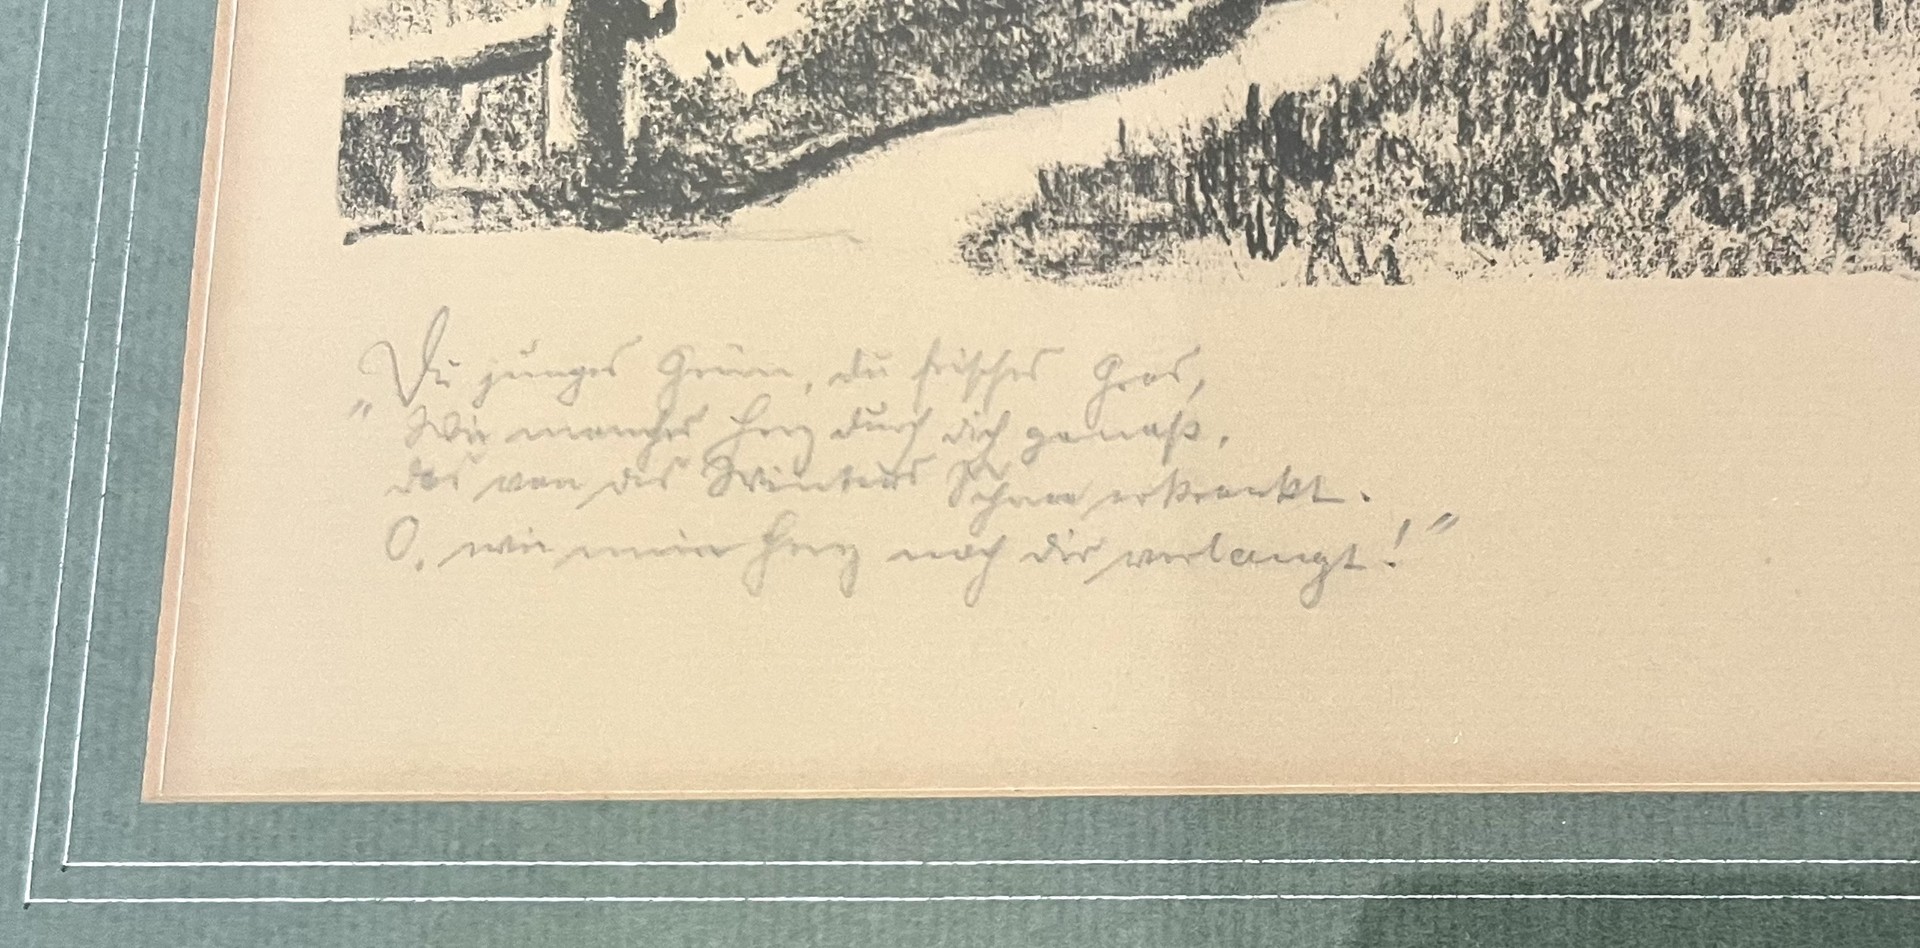 „Du junges Grün, du frisches Gras,
Wie manches Herz durch dich genaß,
das von des Winters Schnee erkrankt.
O, wie mein Herz nach dir verlangt!"